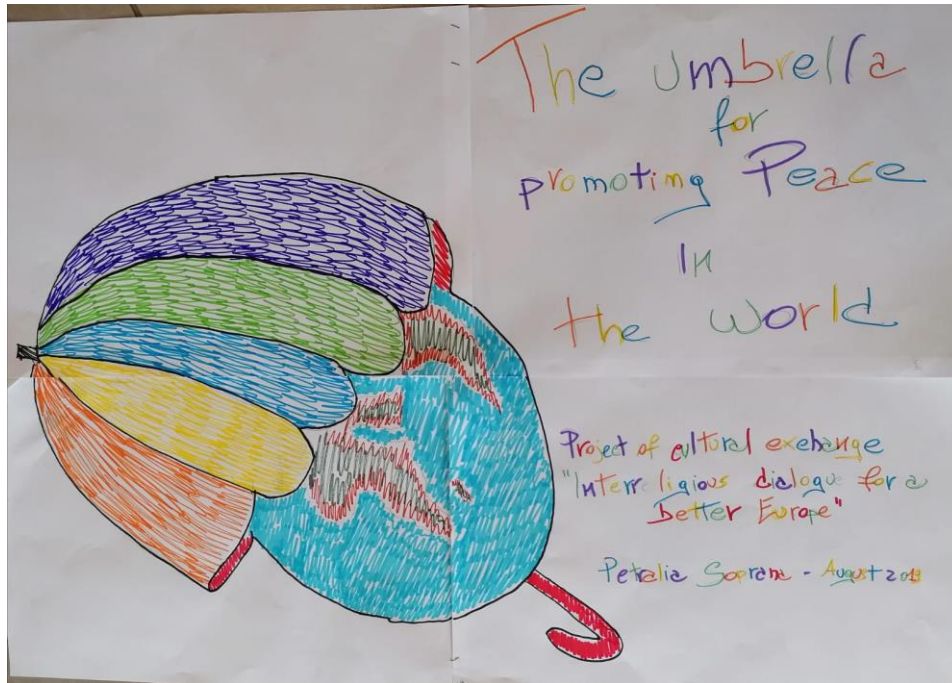 The umbrella
for
promoting Peace
In
the world
Project of cultural exchange
"Interreligious dialogue for a
better Europe"
Petralia Soprana - August